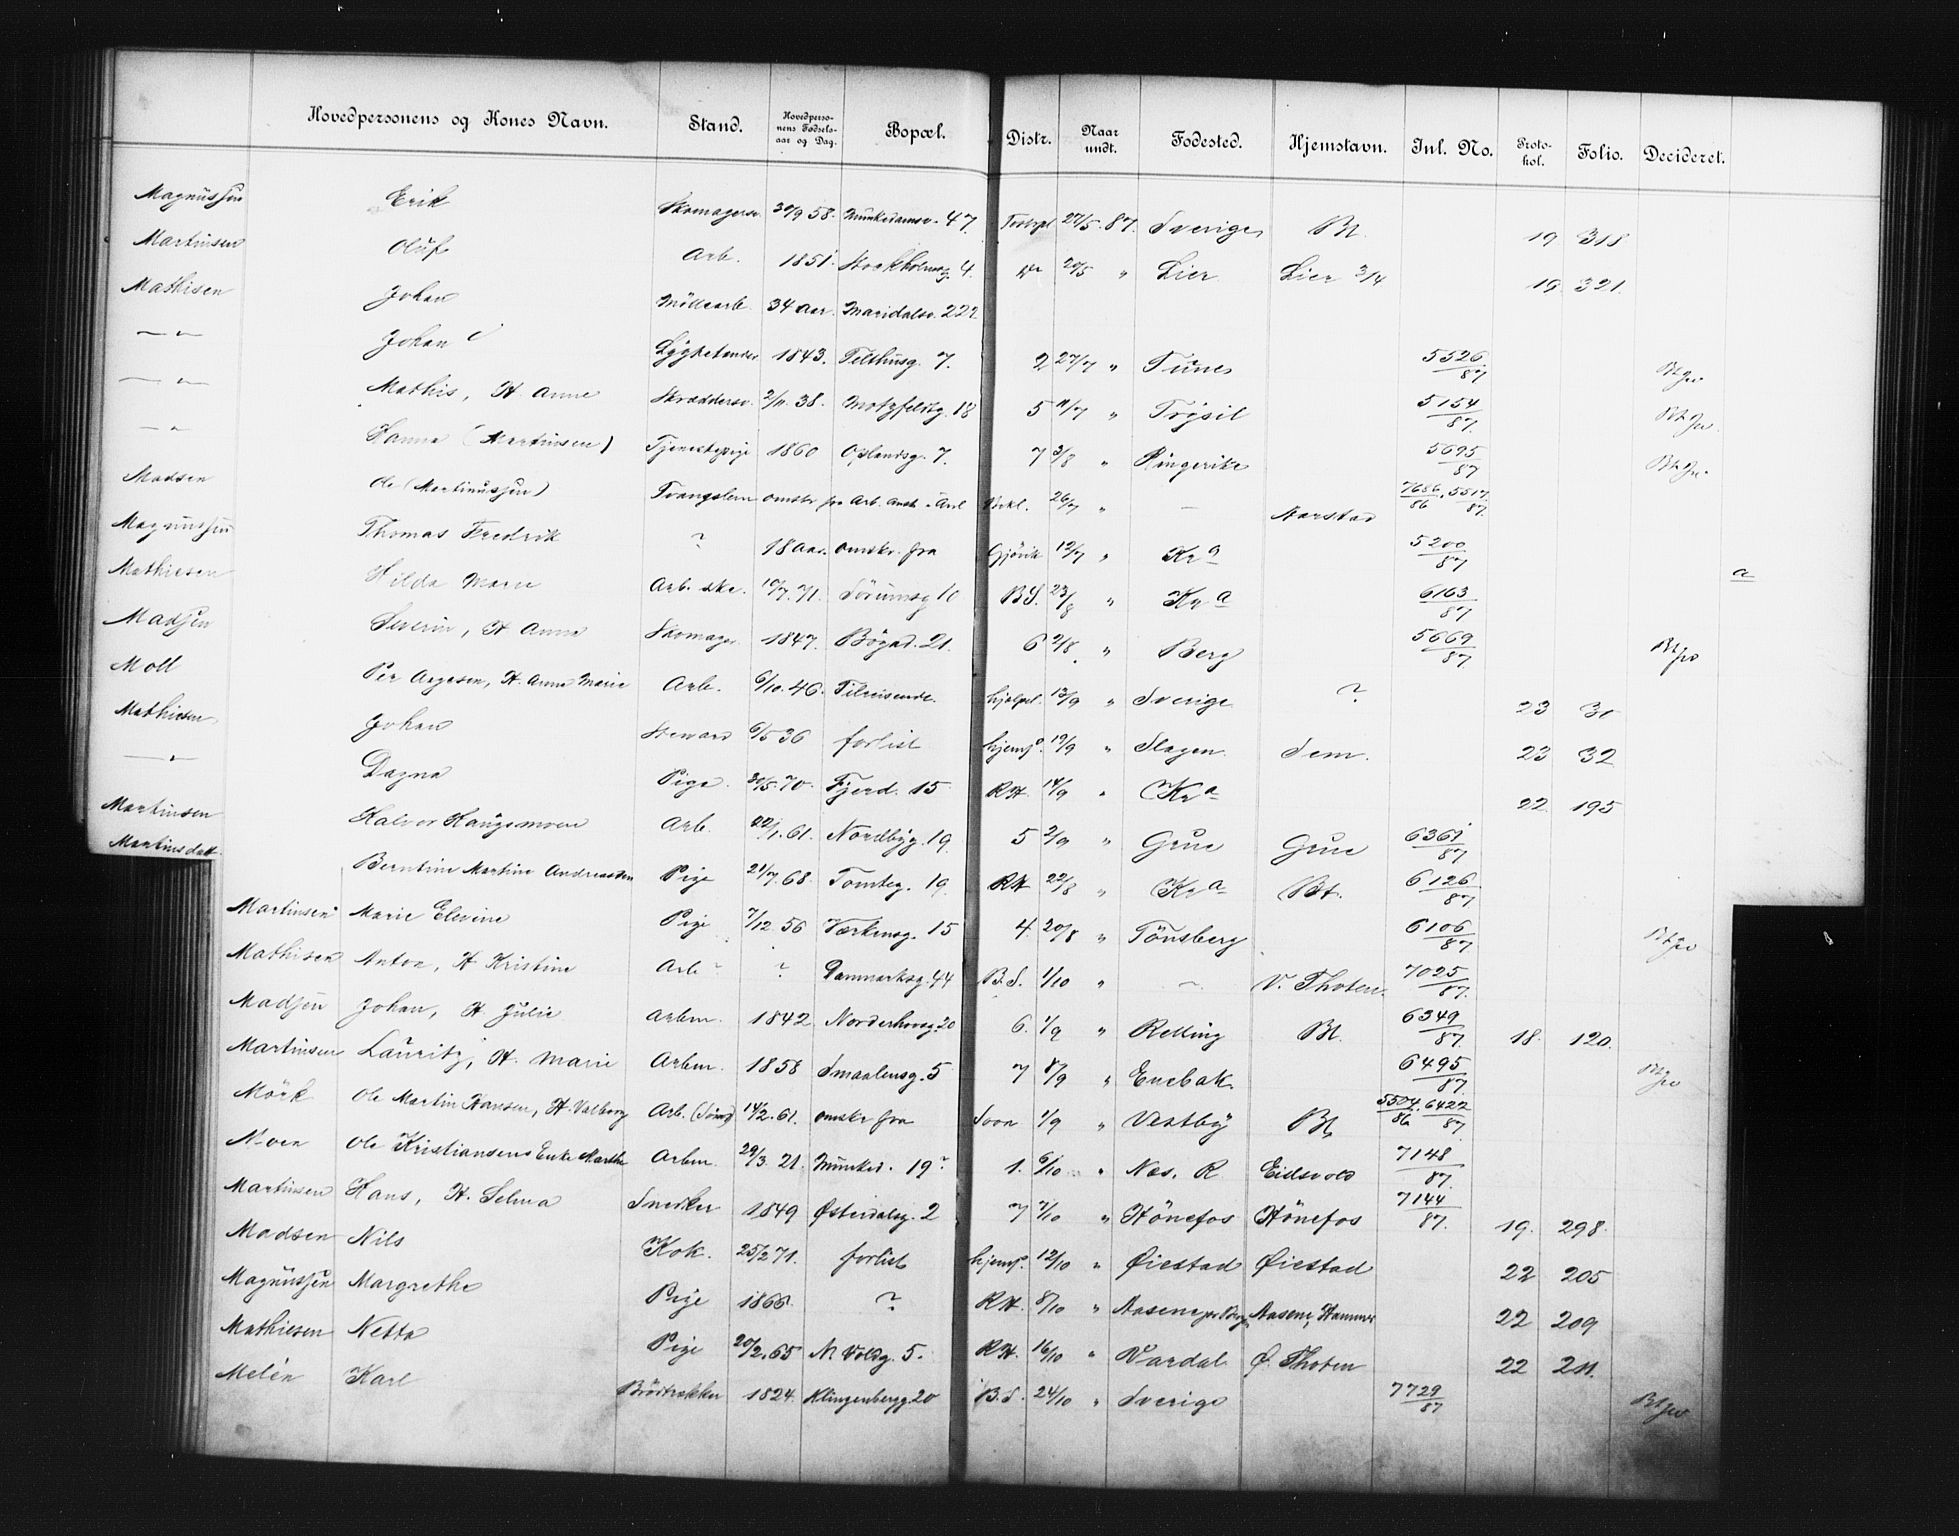 Hovedpersonens og Kones Navn. Stand. Hovedpersonens Fødselsaar og Dag. Bopæl. Distr. Naar undt. Fødested. Hjemstavn. Jnl. No. Protokol. Folio. Decideret.
Magnussen Erik Skomagersv. 30/9 58. Munkedamsv. 47. 27/5 87. Sverige Bt. 19 318
Martinsen Oluf Arb. 1851. Stockholmsg. 4. 20/5 " Lier Lier 3/4 19. 321.
Mathisen Johan Mödearb 34 aar. Maridalsv. 222.
— " — Johan Lygtetænder 1843. Telthusg. 7. 2 27/7 " Tunes 5526/87
— " — Mathis, H. Anne Skræddersv. 2/11. 38. Motzfeldtg. 18 5 11/7 " Trysil 5154/87.
— " — Hanna (Martinsen) Tjenestepige 1860 Oplandsg. 7. 7 3/8 " Ringerike 5695/87
Madsen Ole (Martinussen) Tvangslem omskr fra Arb. Anst. 26/7 " — Aarstad 7686/86, 5517/87.
Magnussen Thomas Fredrik ? 18 aar. omskr. fra Gjövik 12/7 " Kra 5200/87
Mathiesen Hilda Marie Arb. ske. 10/7. 71. Sörumsg 10 B.S. 23/8 " Kra 6163/87 a
Madsen Severin, H Anna Skomager 1847. Bögad. 21. 6 2/8 " Berg 5669/87
Moll Per Aagesen, H. Anne Marie Arb. 6/10. 46. Tilreisende. hjælpel. 13/9 " Sverige ? 23 31
Mathiesen Johan Steward 6/5 36 forlist hjemf. 19/9 " Slagen Sem. 23 32
— " — Dagna Pige. 30/5. 70. Fjerd. 15 RH. 14/9 " Kra 22. 195
Martinsen Halvor Haugsmoen Arb. 22/1. 61. Nordbyg. 19. 5 2/9 " Grue Grue 6361/87
Martinsdatt. Berntine Martine Andreassen Pige 21/7. 68. Tomteg. 19. RH 22/8 " Kra Bt. 6126/87
Martinsen Marie Elevine Pige 7/12 56 Værkensg. 15 4. 20/8 " Tönsberg 6106/87
Mathisen Anton, H Kristine Arb ? ? Danmarksg. 44 B.S. 1/10 " — V. Thoten. 7025/87.
Madsen Johan, H Julie Arbm. 1842 Norderhovsg. 20 6. 1/9 " Relling Bt. 6349/87. 18. 120.
Martinsen Lauritz, H. Marie Arbm. 1858 Smaalensg. 5 7 8/9 " Enebak. 6495/87.
Mörk Ole Martin Hansen, H. Valborg Arb. 14/2. 61. omskr fra Soon 1/9 " Vestby Bt, 5504/86, 6422/87
Moen Ole Kristiansens Enke Marthe Arbm. 29/3. 21. Munked. 19? 1. 6/10 " Næs. R. Eidsvold 7148/87.
Martinsen Hans, H. Selma Snedker 1849 Østerdalsg. 2 7 7/10 " Hönefos Hönefos 7144/87. 19. 298.
Madsen Nils Kok. 25/2 71. forlist hjemf. 12/10 " Øiestad Øiestad 22 205
Magnussen Margrethe Pige 1866. ? RH. 8/10 " Aasene, Hammer 22 209
Mathiesen Netta Pige 20/2. 65 N Voldg. 5. RH. 16/10 " Vardal Ø. Thoten 22 211.
Melén Karl Brödtrækker 1824. Klingenbergg. 20 B.S. 24/10 " Sverige 7729/87